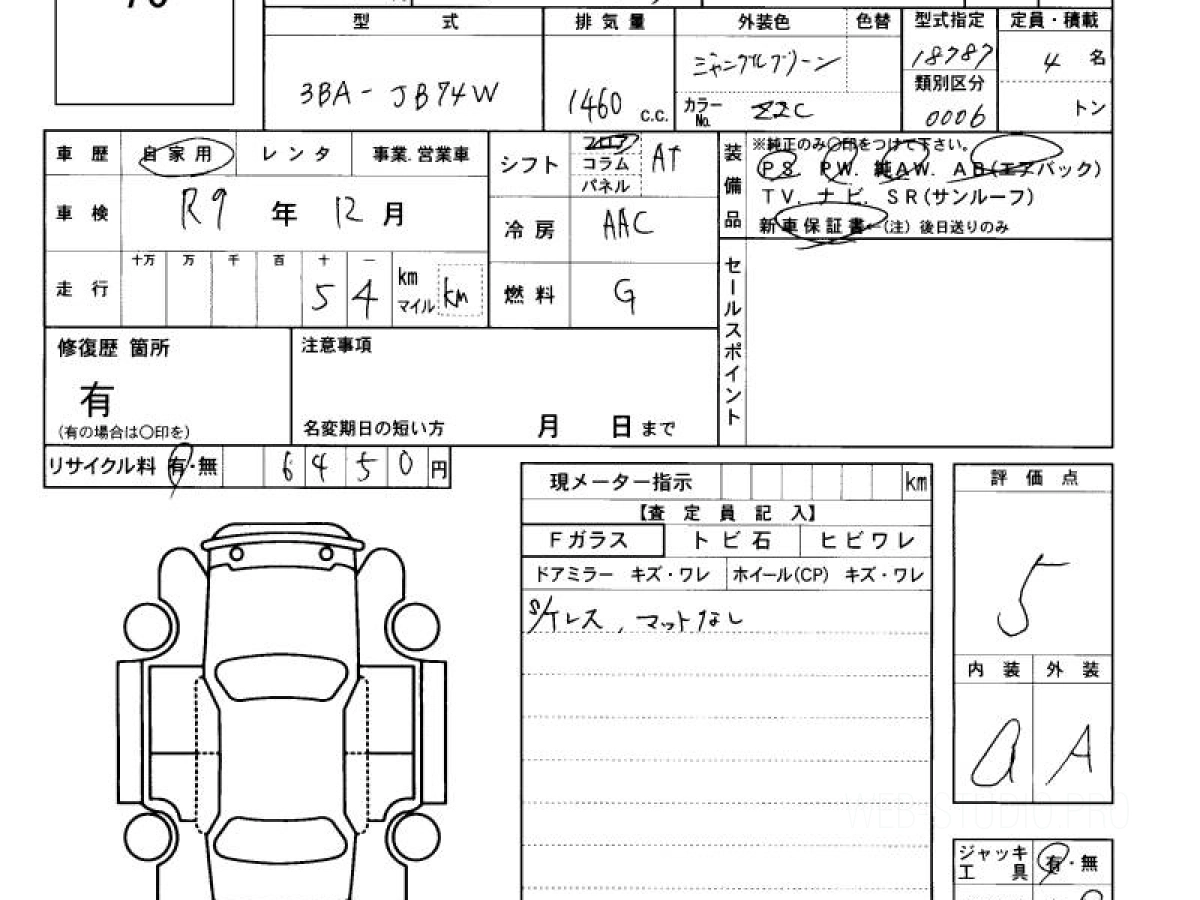 型 式 排気量 外装色 色替 型式指定 定員・積載
3BA-JB74W 1460 c.c. ジャングルグリーン 18787 4 名
カラーNo. ZZC 類別区分 0006 トン
車歴 自家用 レンタ 事業.営業車
シフト フロア コラム パネル AT
装備品 ※純正のみ○印をつけて下さい。
PS. PW. 純AW. AB(エアバック)
TV. ナビ. SR(サンルーフ)
新車保証書←(注)後日送りのみ
車検 R9 年 12 月
冷房 AAC
走行 十万 万 千 百 十 一
5 4 km マイル km
燃料 G
セールスポイント
修復歴 箇所
有
(有の場合は○印を)
注意事項
名変期日の短い方 月 日まで
リサイクル料 有・無 6450 円
現メーター指示 km
【査定員記入】
Fガラス トビ石 ヒビワレ
ドアミラー キズ・ワレ ホイール(CP) キズ・ワレ
S/ケレス、マットなし
評価点
5
内装 外装
a A
WEB-STUDIO.PRO
ジャッキ 工具 有・無